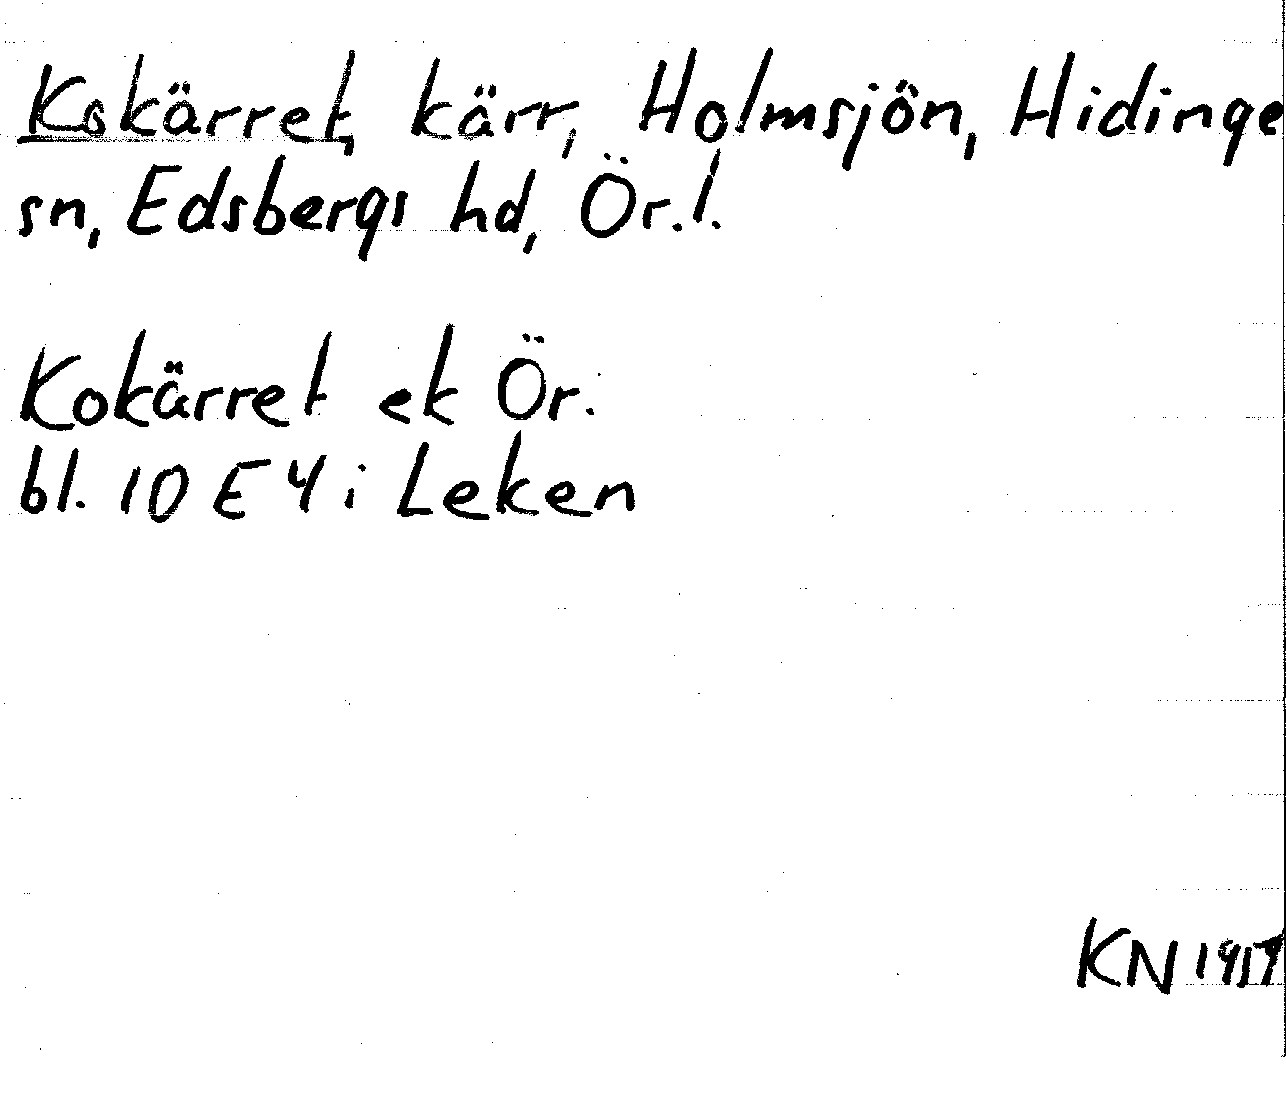 Kokärret, kärr, Holmsjön, Hidinge
sn, Edsbergs hd, Ör.l.
Kokärret ek Ör.
bl. 10 E 4 i Leken
KN